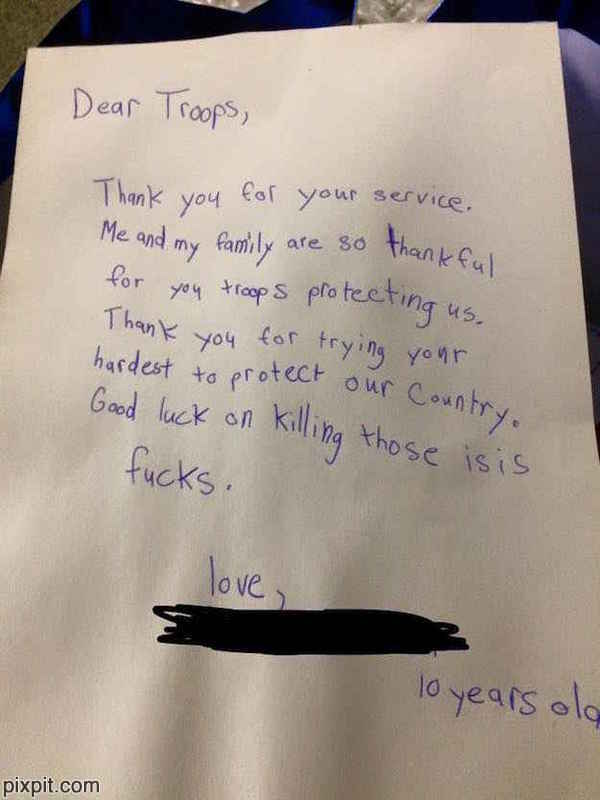 Dear Troops,
Thank you for your service.
Me and my family are so thankful
for you troops protecting us.
Thank you for trying your
hardest to protect our Country.
Good luck on killing those isis
fucks.
love,
10 years old
pixpit.com